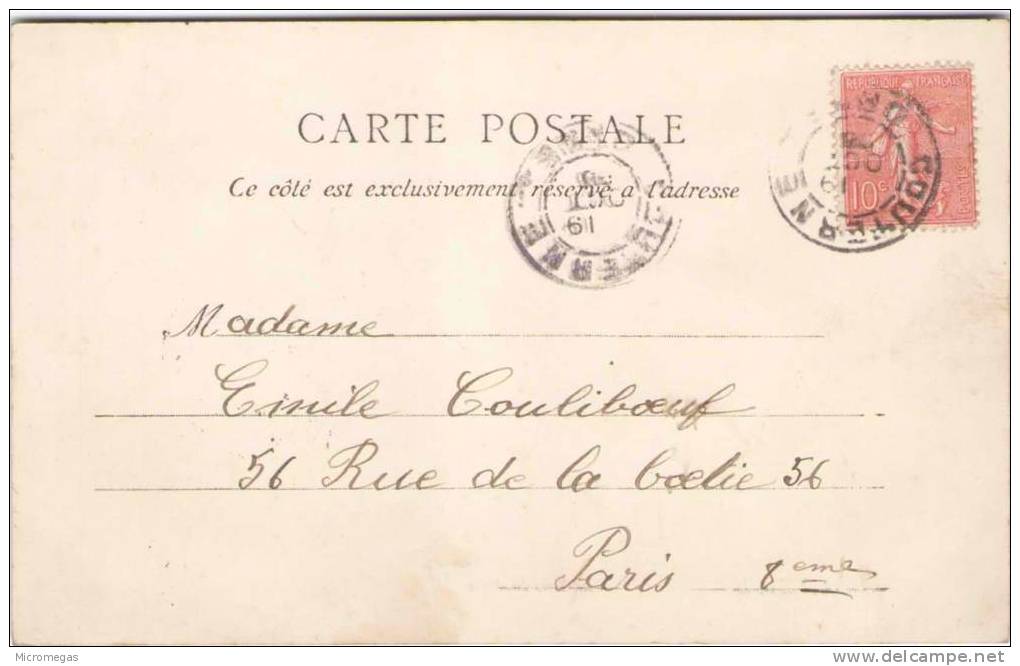 REPUBLIQUE FRANÇAISE
POSTES
10 c
COUTERNE
CARTE POSTALE
Ce côté est exclusivement réservé à l'adresse
COUTERNE
Madame
Emile Coulibœuf
56 Rue de la boetie 56
Paris 8eme
Micromegas
delcampe.net